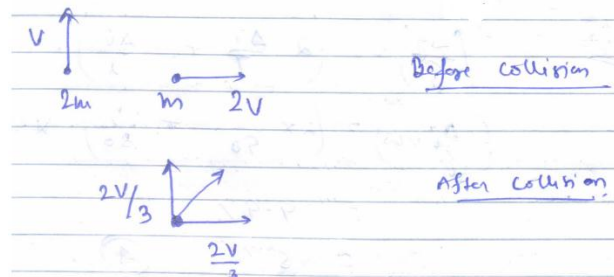 V
2m m 2V Before collision
2V/3 After collision
2V
3